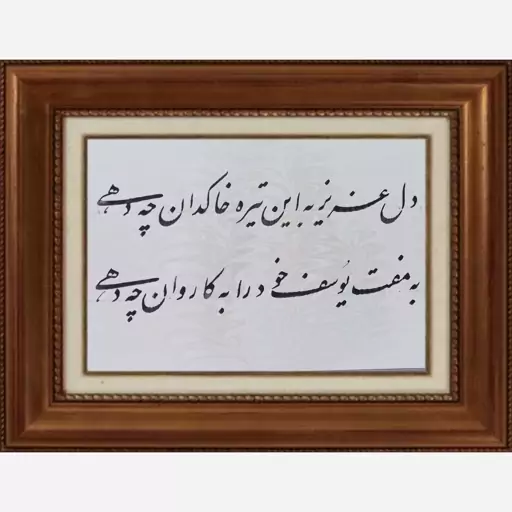 دل عزیز به این تیره خاکدان چه دهی
به مفت یُوسف خود را به کاروان چه دهی